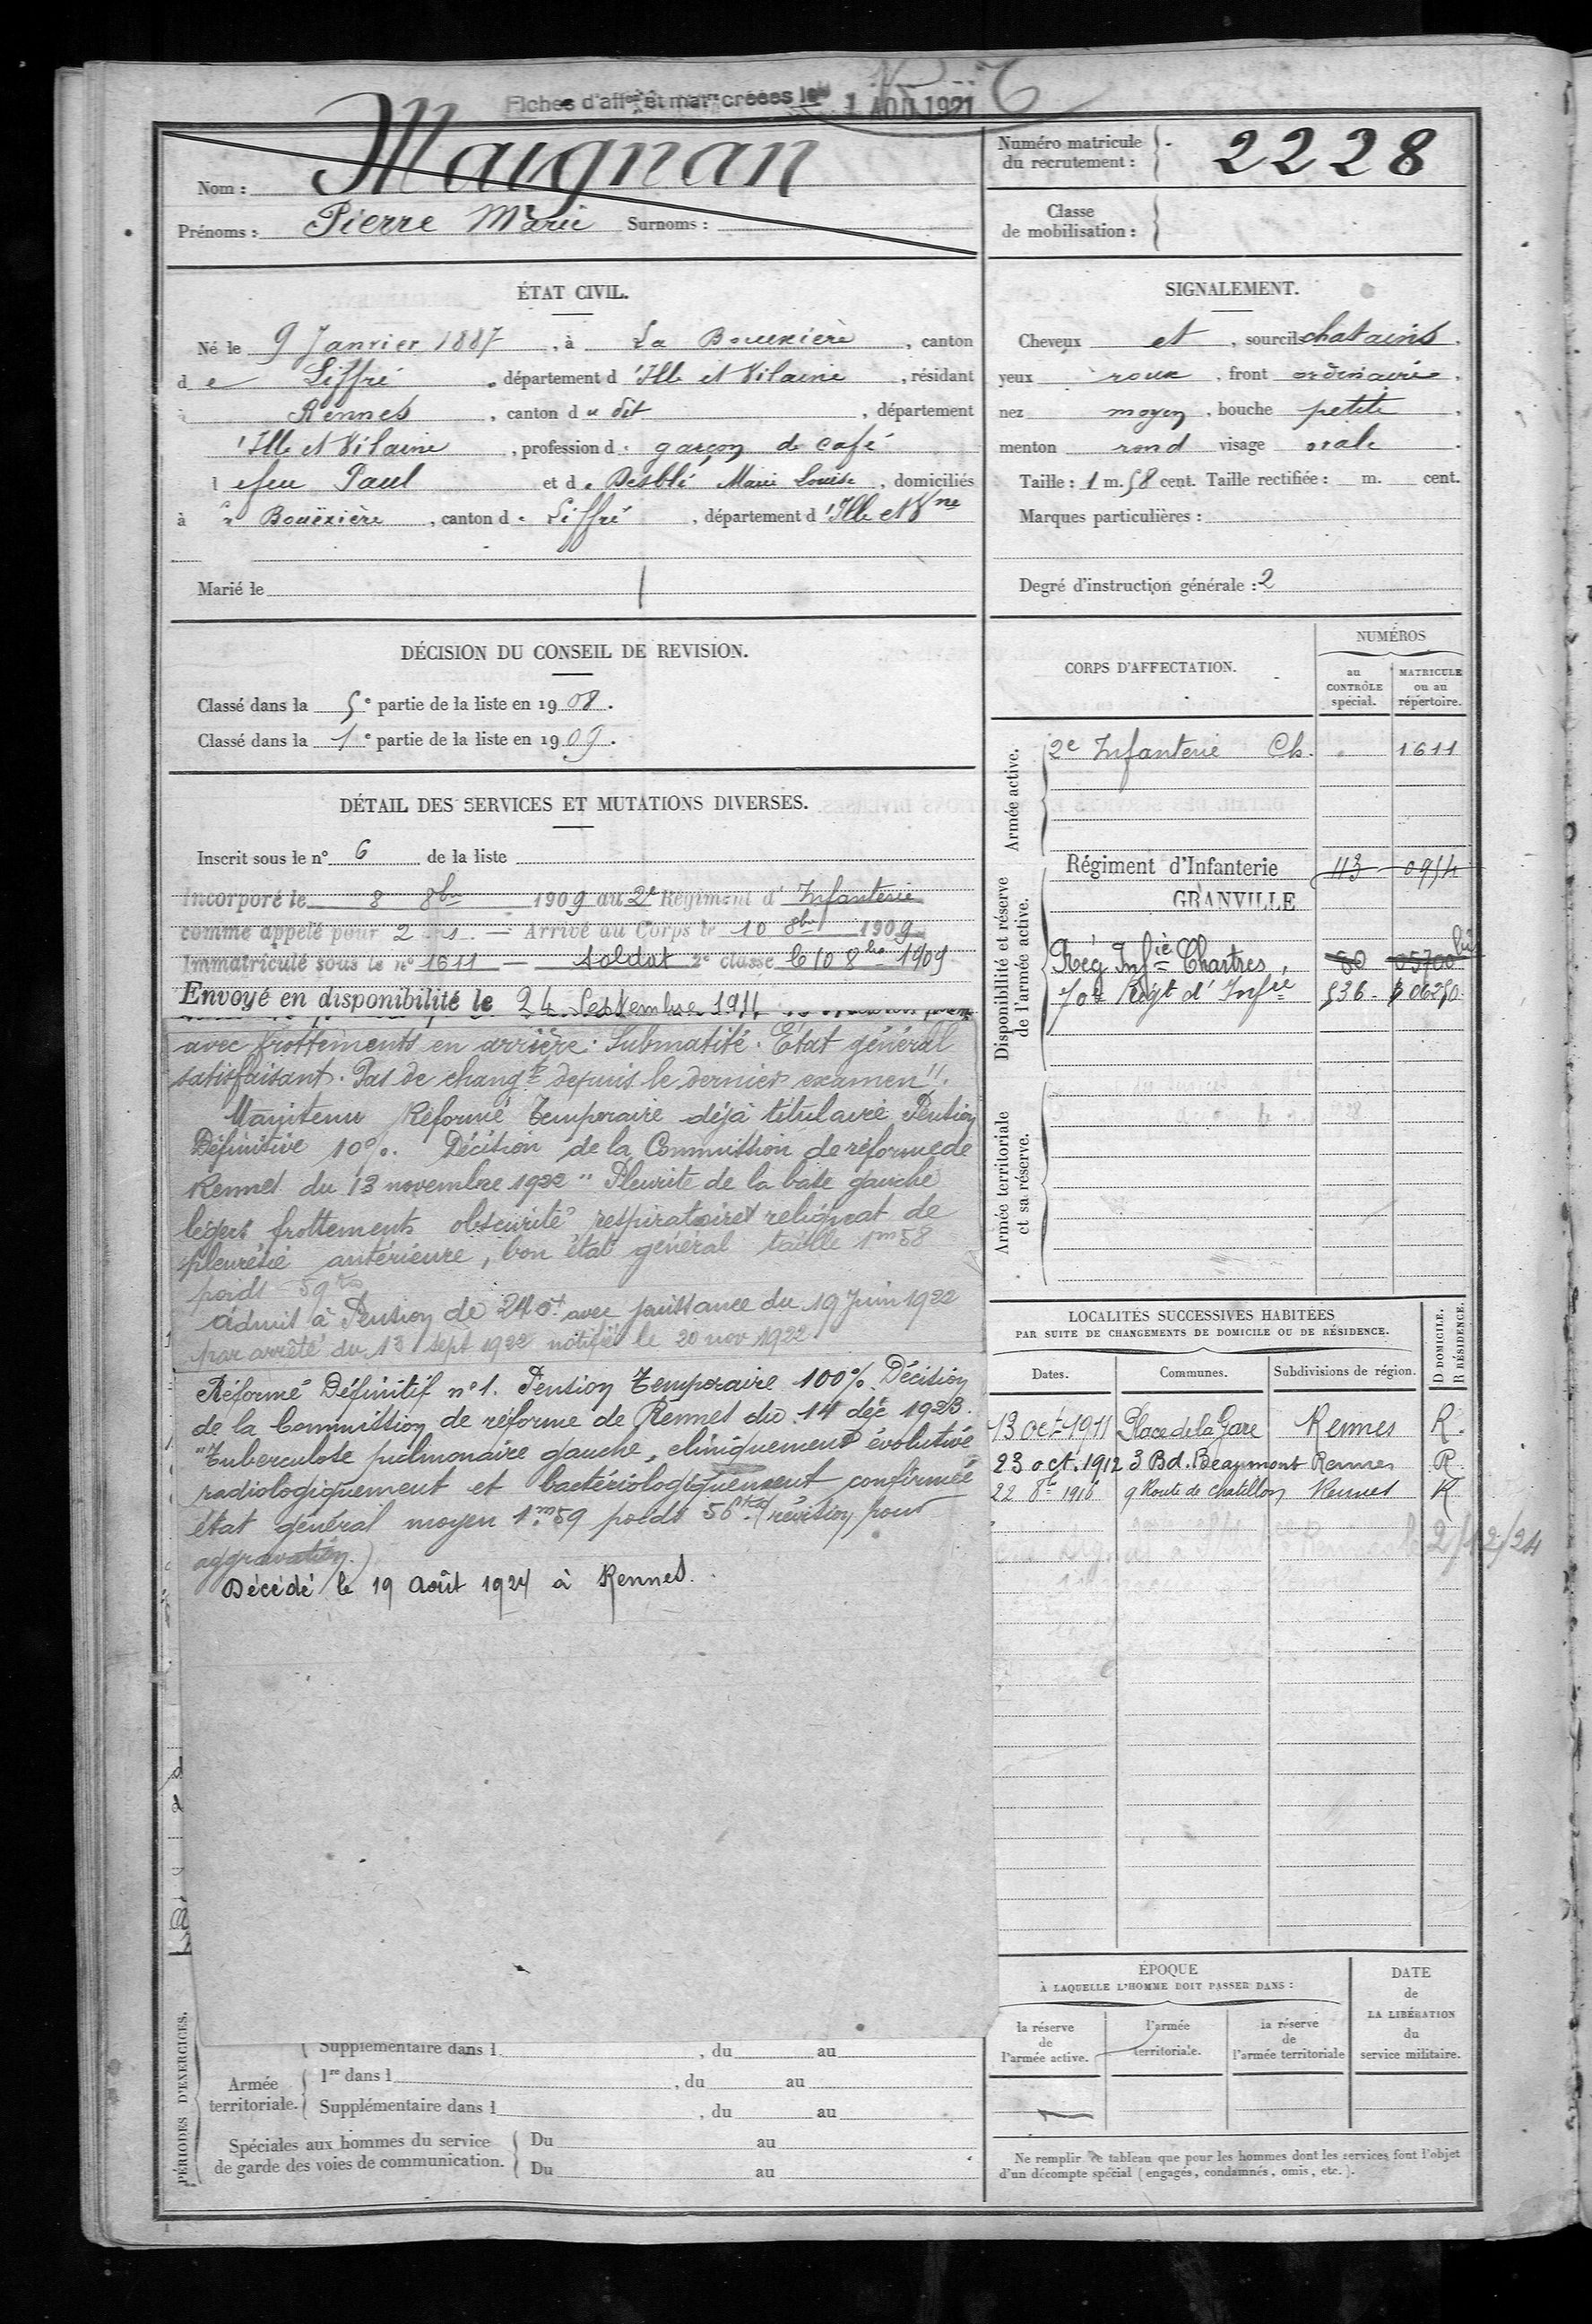 Fiches d'aff on et mat on créées le 1 AOU 1921
Nom : Maignan
Prénoms : Pierre Marie Surnoms :
Numéro matricule du recrutement : 2228
Classe de mobilisation :
ÉTAT CIVIL.
Né le 9 Janvier 1887, à La Bouexière, canton
de Liffré, département d'Ille et Vilaine, résidant
à Rennes, canton du dit, département
d'Ille et Vilaine, profession de garçon de café
feu Paul et de Desblé Marie Louise, domiciliés
à la Bouëxière, canton de Liffré, département d'Ille et Vne
Marié le
SIGNALEMENT.
Cheveux et, sourcils chatains,
yeux roux, front ordinaire,
nez moyen, bouche petite,
menton rond visage ovale.
Taille : 1 m. 58 cent. Taille rectifiée : m. cent.
Marques particulières :
Degré d'instruction générale : 2
DÉCISION DU CONSEIL DE REVISION.
Classé dans la 5e partie de la liste en 1908.
Classé dans la 1e partie de la liste en 1909.
DÉTAIL DES SERVICES ET MUTATIONS DIVERSES.
Inscrit sous le n° 6 de la liste
Incorporé le 8 8bre 1909 au 2e Régiment d'Infanterie
comme appelé pour 2 ans — Arrivé au Corps le 10 8bre 1909
Immatriculé sous le n° 1611 — soldat 2e classe le 10 8bre 1909
Envoyé en disponibilité le 24 Septembre 1911
avec frottements en arrière. Submatité. Etat général
satisfaisant. Pas de changt depuis le dernier examen".
Maintenu Réformé Temporaire déjà titulaire Pension
Définitive 10%. Décision de la Commission de réforme de
Rennes du 13 novembre 1922 "Pleurite de la base gauche
légers frottements obscurité respiratoire reliquat de
pleurésie antérieure, bon état général taille 1m58
poids 59 kos
Admis à Pension de 240f avec jouissance du 19 Juin 1922
par arrêté du 13 sept 1922 notifiée le 20 nov 1922
Réformé Définitif n°1. Pension Temporaire 100% Décision
de la Commission de réforme de Rennes du 14 déc 1923.
"Tuberculose pulmonaire gauche, cliniquement évolutive
radiologiquement et bactériologiquement confirmée
état général moyen 1m59 poids 56 kos (révision pour
aggravation.)
Décédé le 19 Août 1924 à Rennes.
CORPS D'AFFECTATION.
NUMÉROS
au CONTRÔLE spécial.
MATRICULE ou au répertoire.
Armée active.
2e Infanterie Ch. " 1611
Disponibilité et réserve de l'armée active.
Régiment d'Infanterie 113 0954
GRANVILLE
Rég Infie Chartres 80 05700 bis
70e Régt d'Infie 536 06250
Armée territoriale et sa réserve.
LOCALITÉS SUCCESSIVES HABITÉES
PAR SUITE DE CHANGEMENTS DE DOMICILE OU DE RÉSIDENCE.
Dates. Communes. Subdivisions de région. D DOMICILE. R RÉSIDENCE.
13 oct 1911 Place de la Gare Rennes R.
23 oct. 1912 3 Bd. Beaumont Rennes R
22 8bre 1916 9 Route de Chatillon Rennes R
2/12/24
ÉPOQUE
À LAQUELLE L'HOMME DOIT PASSER DANS :
la réserve de l'armée active.
l'armée territoriale.
la réserve de l'armée territoriale
DATE de LA LIBÉRATION du service militaire.
Ne remplir ce tableau que pour les hommes dont les services font l'objet
d'un décompte spécial (engagés, condamnés, omis, etc.).
PÉRIODES D'EXERCICES.
Supplémentaire dans l , du au
Armée territoriale.
1re dans l , du au
Supplémentaire dans l , du au
Spéciales aux hommes du service
de garde des voies de communication.
Du au
Du au